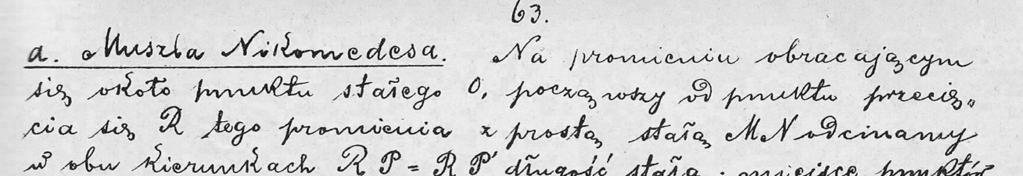 63.
a. Muszla Nikomedesa. Na promieniu obracającym
się około punktu stałego O, począwszy od punktu przecię„
cia się R tego promienia z prostą stałą MN odcinamy
w obu kierunkach RP = RP' długość stałą; miejsce punktów